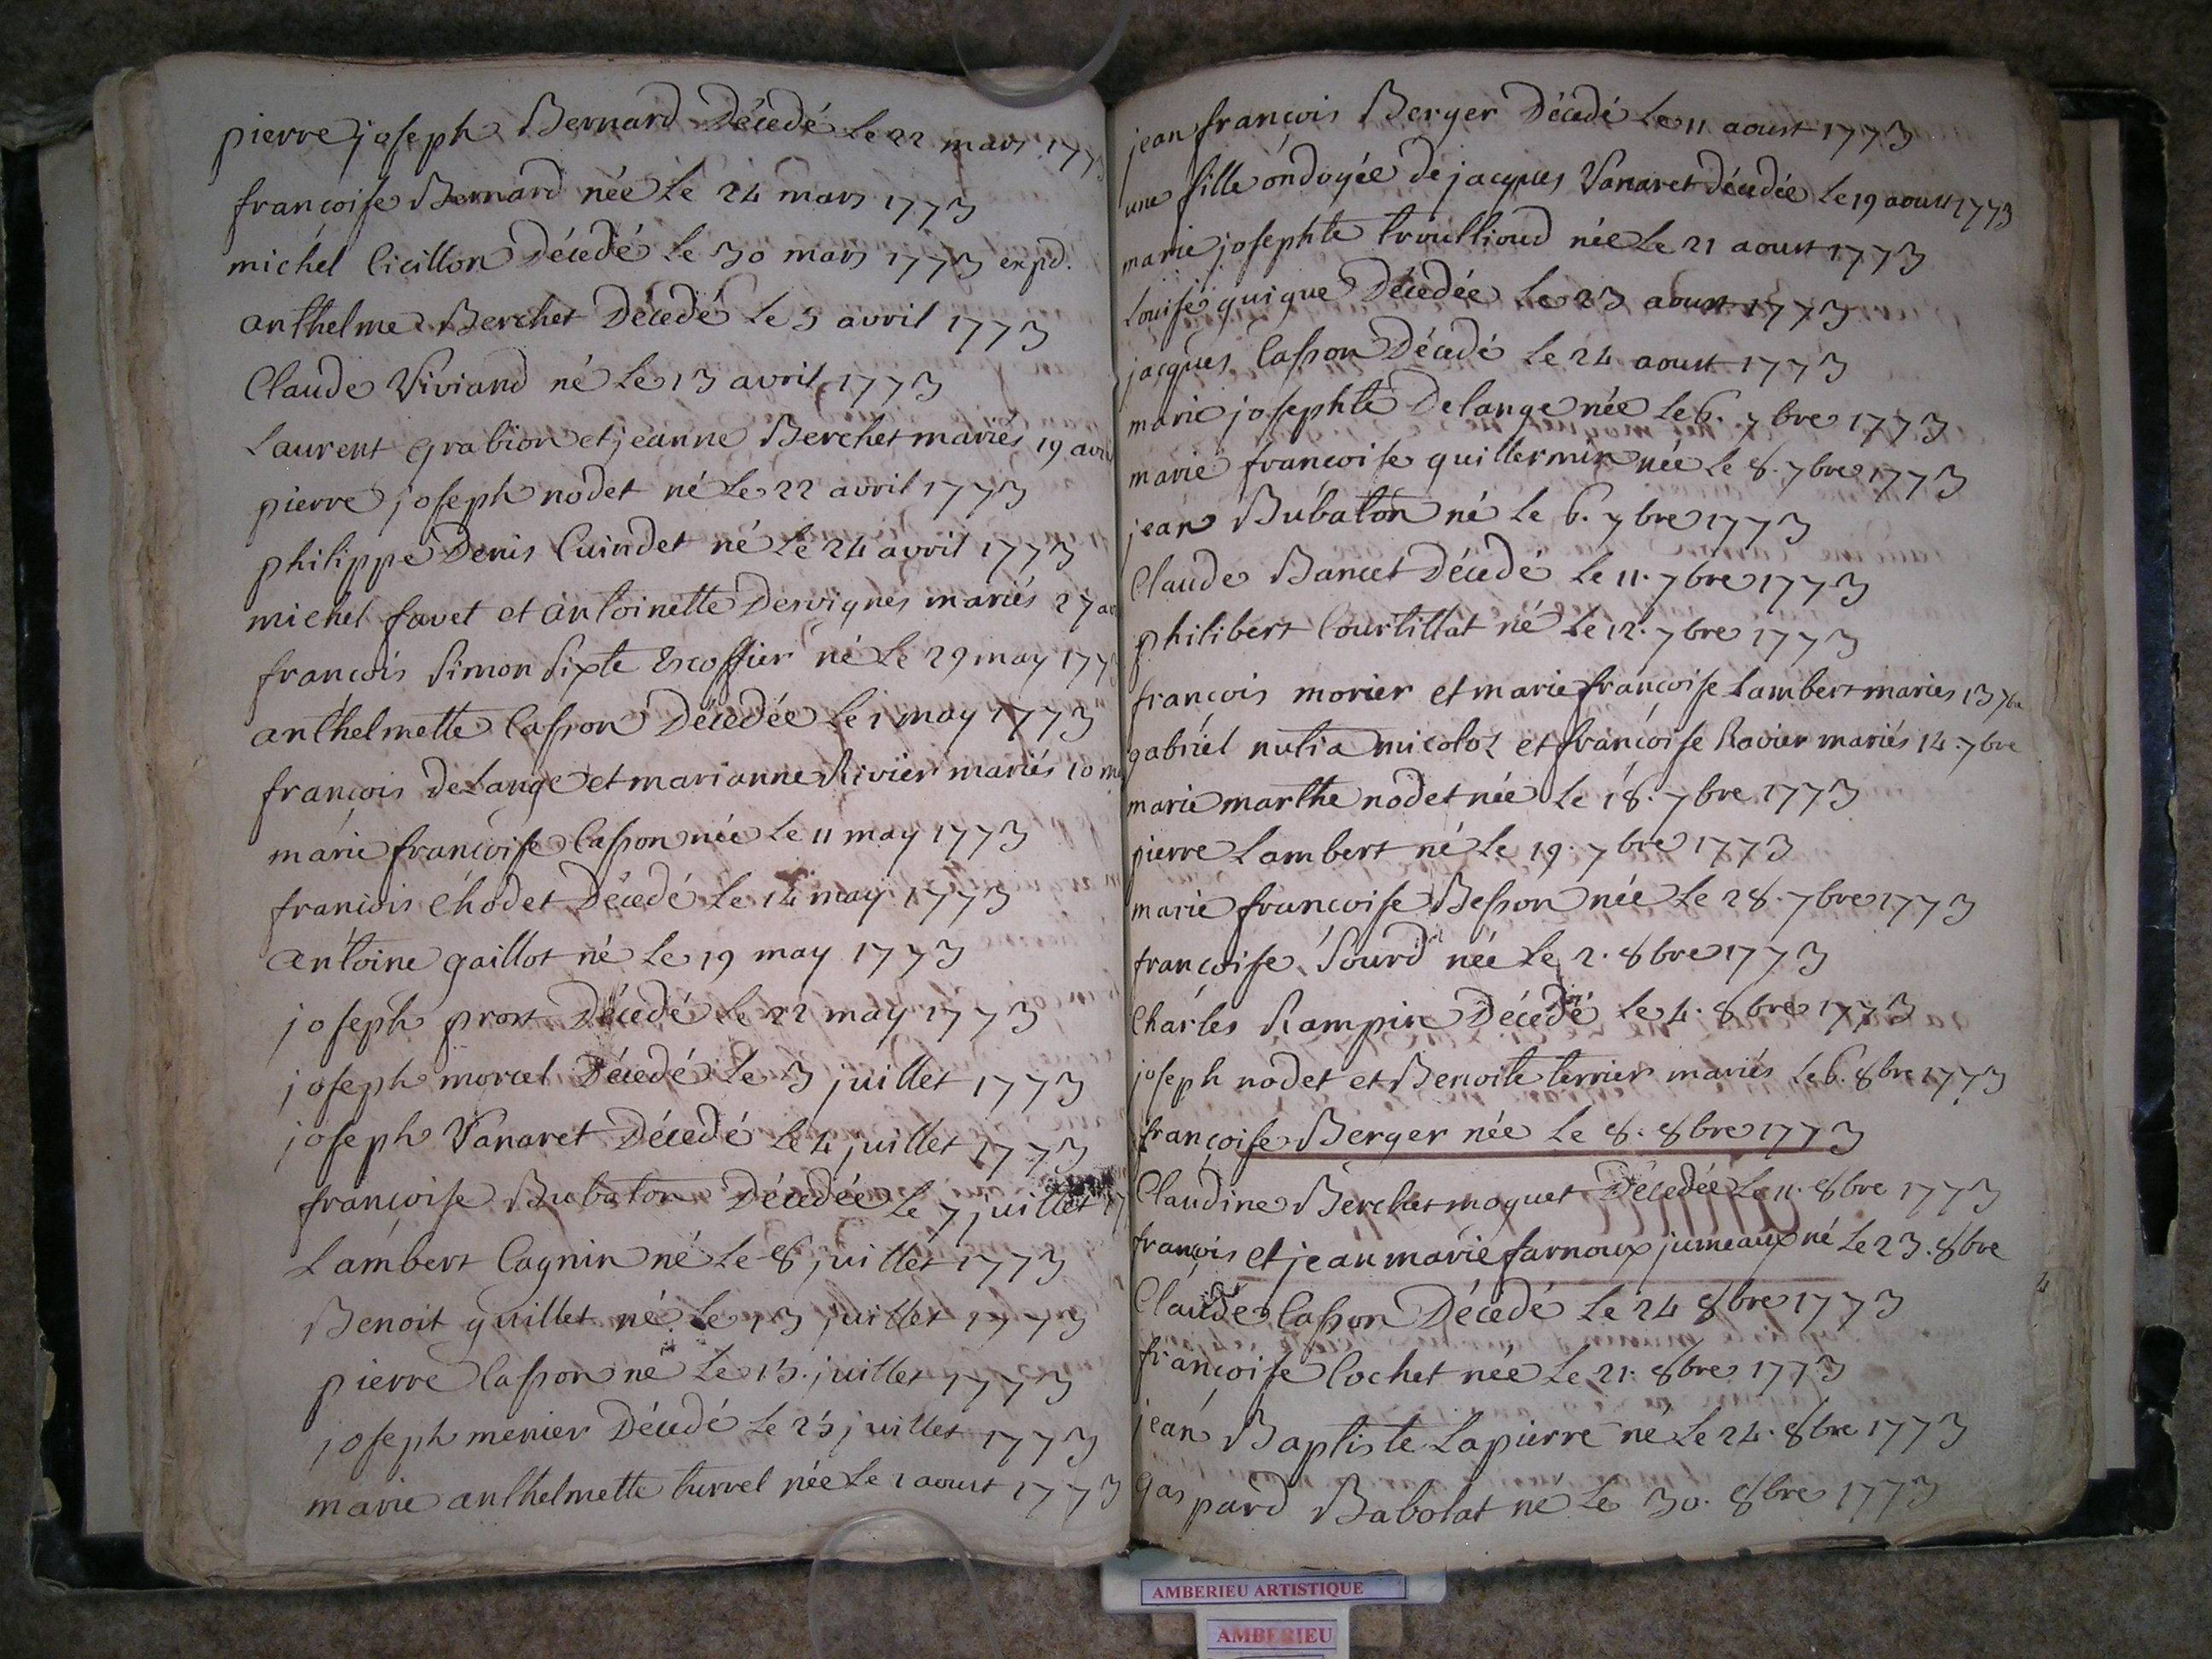 pierre joseph Bernard Décedé Le 22 mars 177
françoise Bernard née Le 24 mars 1773
michel Cicillon Décedé Le 30 mars 1773 expd.
anthelme Berchet Décedé Le 5 avril 1773
Claude Viviand né Le 13 avril 1773
Laurent grabion et jeanne Berchet mariés 19 avri
pierre joseph nodet né Le 22 avril 1773
philippe Denis Cuindet né Le 24 avril 1773
michel favet et antoinette Desvignes mariés 27 av
françois Simon Sixte Escoffier né Le 29 may 1773
anthelmette Casson Décedée Le 1 may 1773
françois deLange et marianne Rivier mariés 10 m
marie françoise Casson née Le 11 may 1773
françois Chodet Décedé Le 14 may 1773
antoine gaillot né Le 19 may 1773
joseph prost Décedé Le 22 may 1773
joseph morcel Décedé Le 3 juillet 1773
joseph Vanaret Décedé Le 4 juillet 1773
françoise Bubaton Décedée Le 7 juillet 17
Lambert Cagnin né Le 8 juillet 1773
Benoit guillet né Le 13 juillet 1773
pierre Casson né Le 15. juillet 1773
joseph menier Décedé Le 25 juillet 1773
marie anthelmette turrel née Le 1 aoust 1773
jean françois Berger Décedé Le 11 aoust 1773
une fille ondoyée de jacques Vanaret décedée Le 19 aoust 1773
marie josephte trouillioud née Le 21 aoust 1773
Louise guigue Décedée Le 23 aoust 1773
jacques Casson Décedé Le 24 aoust 1773
marie josephte Delange née Le 6. 7bre 1773
marie françoise guillermin née Le 8. 7bre 1773
jean Bubaton né Le 6. 7bre 1773
Claude Bancet Décedé Le 11. 7bre 1773
philibert Courtillat né Le 12. 7bre 1773
françois morier et marie françoise Lambert mariés 13 7bre
gabriel nutia micoloz et françoise Ravier mariés 14. 7bre
marie marthe nodet née Le 18. 7bre 1773
pierre Lambert né Le 19. 7bre 1773
marie françoise Besson née Le 28. 7bre 1773
françoise Sourd née Le 2. 8bre 1773
Charles Rampin Décedé Le 4. 8bre 1773
joseph nodet et Benoite terrier mariés Le 6. 8bre 1773
françoise Berger née Le 8. 8bre 1773
Claudine Berchet moquet Décedée Le 11. 8bre 1773
françois et jean marie farnoux jumeaux né Le 23. 8bre
Claude Casson Décedé Le 24 8bre 1773
françoise Cochet née Le 21. 8bre 1773
jean Baptiste Lapierre né Le 24. 8bre 1773
gaspard Babolat né Le 30. 8bre 1773
AMBERIEU ARTISTIQUE
AMBERIEU